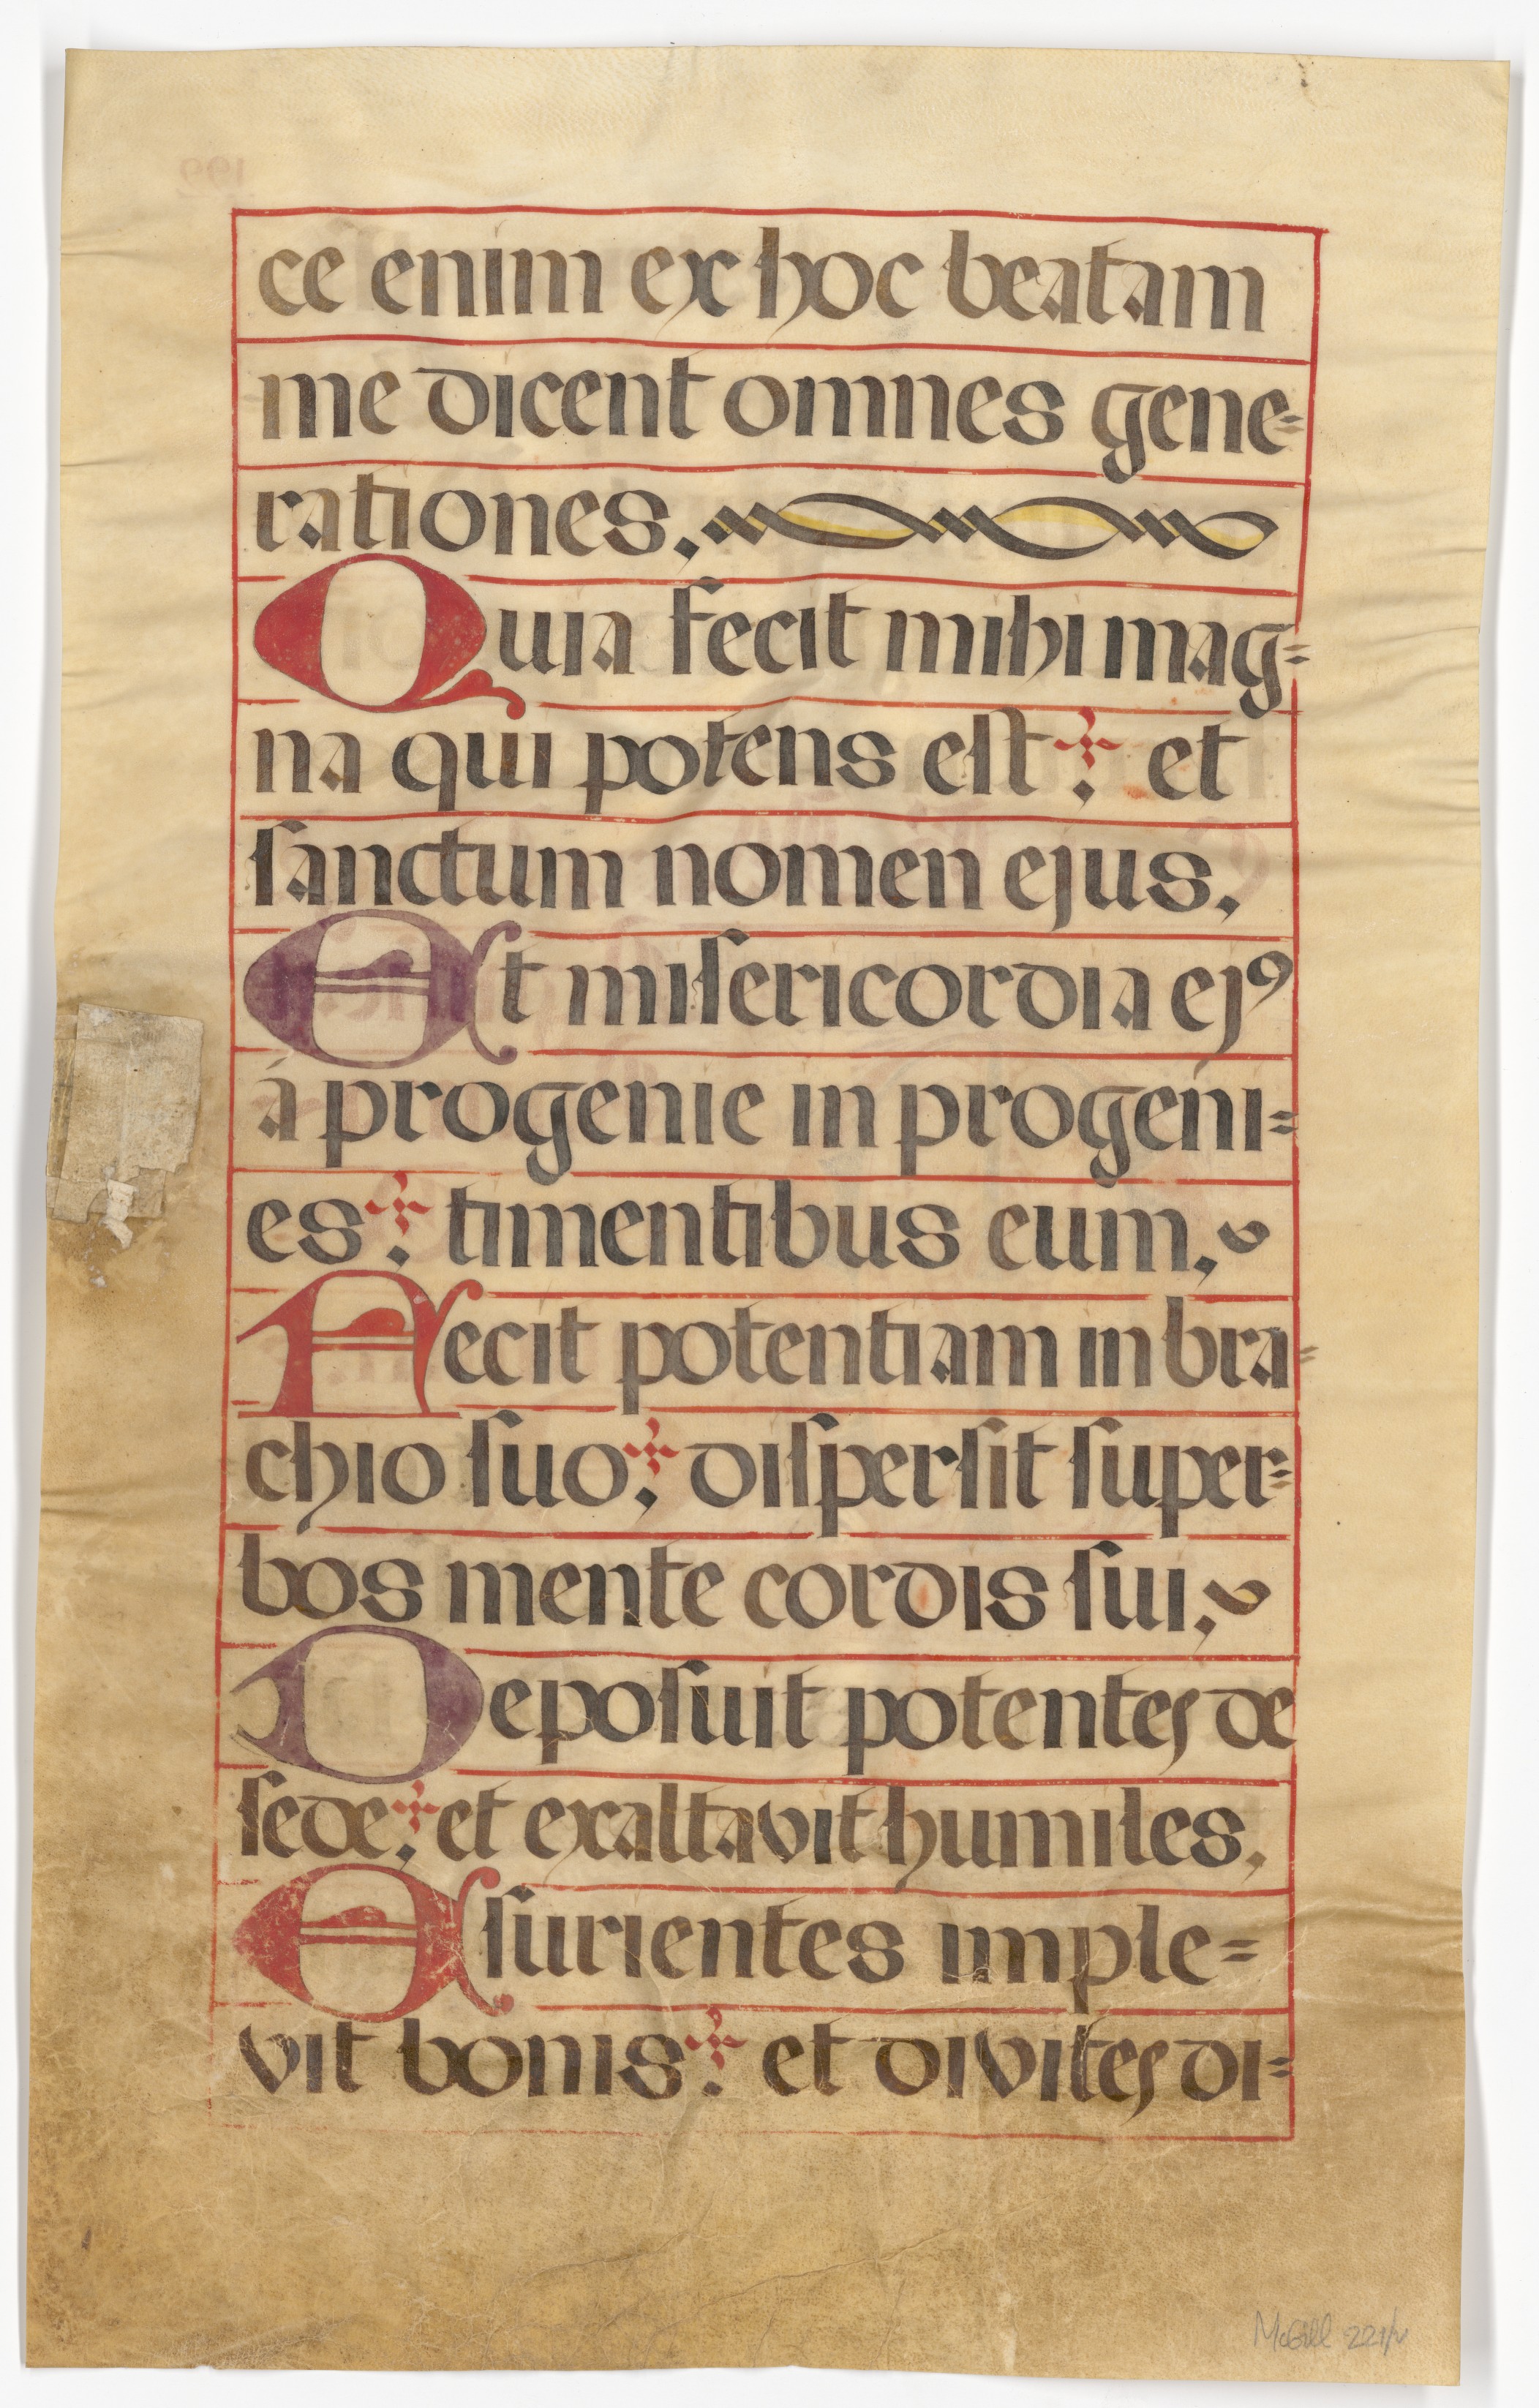 ce enim ex hoc beatam
me dicent omnes gene=
rationes.
Quia fecit mihi mag=
na qui potens eſt: et
ſanctum nomen ejus.
Et miſericordia ejꝰ
à progenie in progéni=
es: timentibus eum.
Fecit potentiam in bra=
chio ſuo: diſperſit ſuper=
bos mente cordis ſui.
Depoſuit potentes de
ſede: et exaltavit humiles.
Eſurientes imple=
vit bonis: et divites di=
McGill 221/v
199